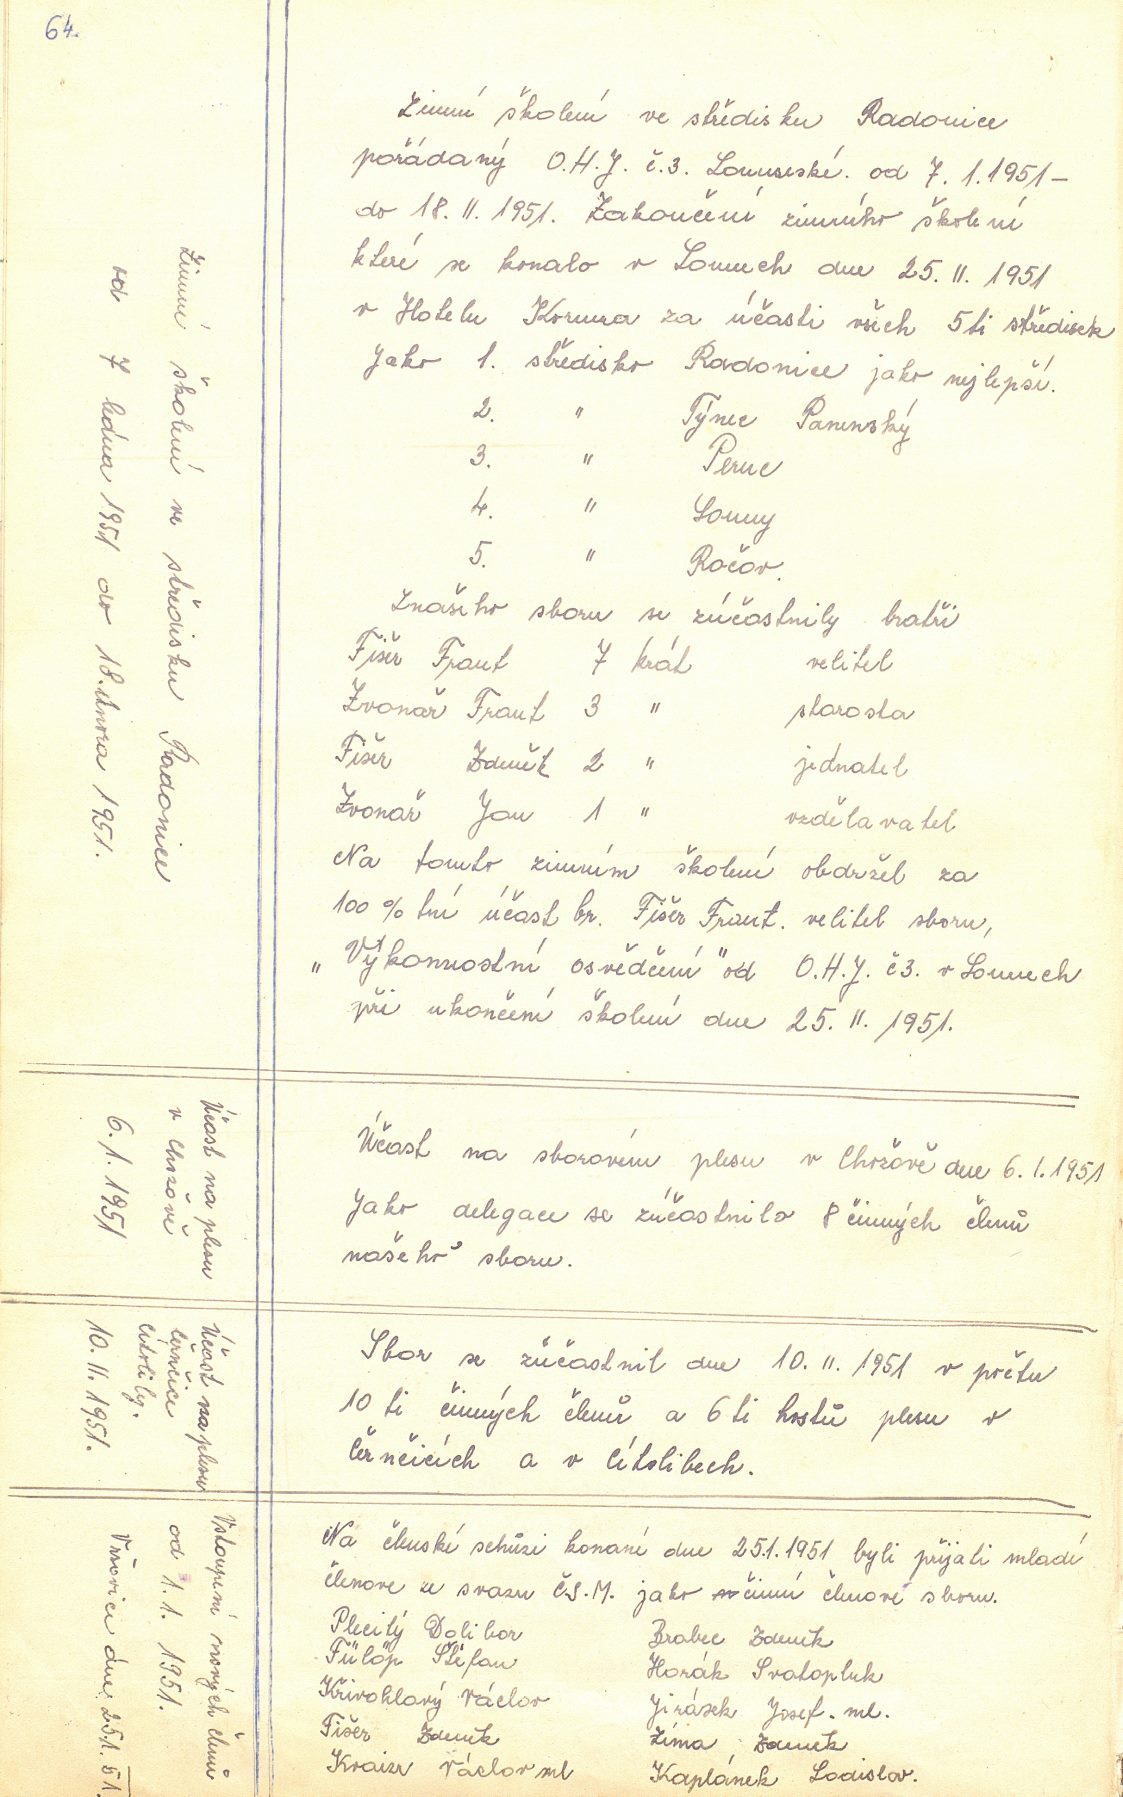 64.
Zimní školení ve středisku Radonice
od 7 ledna 1951 do 18. února 1951.
Zimní školení ve středisku Radonice
pořádaný O.H.J. č.3. Lounské. od 7. 1. 1951 –
do 18. II. 1951. Zakončení zimního školení
které se konalo v Lounech dne 25. II. 1951
v Hotelu Koruna za účasti všech 5ti středisek
Jako 1. středisko Radonice jako nejlepší.
2. " Týnec Panenský
3. " Peruc
4. " Louny
5. " Ročov.
Znašeho sboru se zúčastnily bratři
Fišer Frant 7 krát velitel
Zvonař Frant 3 " starosta
Fišer Zdeněk 2 " jednatel
Zvonař Jan 1 " vzdělavatel
Na tomto zimním školení obdržel za
100 % tní účast br. Fišer Frant. velitel sboru,
„Výkonnostní osvědčení" od O.H.J. č3. v Lounech
při ukončení školení dne 25. II. 1951.
Účast na plesu
v Chožově
6. 1. 1951
Účast na sborovém plesu v Chožově dne 6. 1. 1951
Jako delegace se zúčastnilo 8 činných členů
našeho sboru.
Účast na plesu
Černčice
Cítoliby.
10. II. 1951.
Sbor se zúčastnil dne 10. II. 1951 v počtu
10 ti činných členů a 6 ti hostů plesu v
Černčicích a v Cítolibech.
Vstoupení nových členů
od 1. 1. 1951.
Vršovice dne 25.1. 51.
Na členské schůzi konané dne 25.1.1951 byli přijati mladí
členove ze svazu Č.S.M. jako činní členové sboru.
Plecitý Dalibor Brabec Zdeněk
Fülöp Štefan Horák Svatopluk
Křivohlavý Václav Jirásek Josef. ml.
Fišer Zdeněk Zíma Zdeněk
Kraizr Václav ml Kaplánek Ladislav.